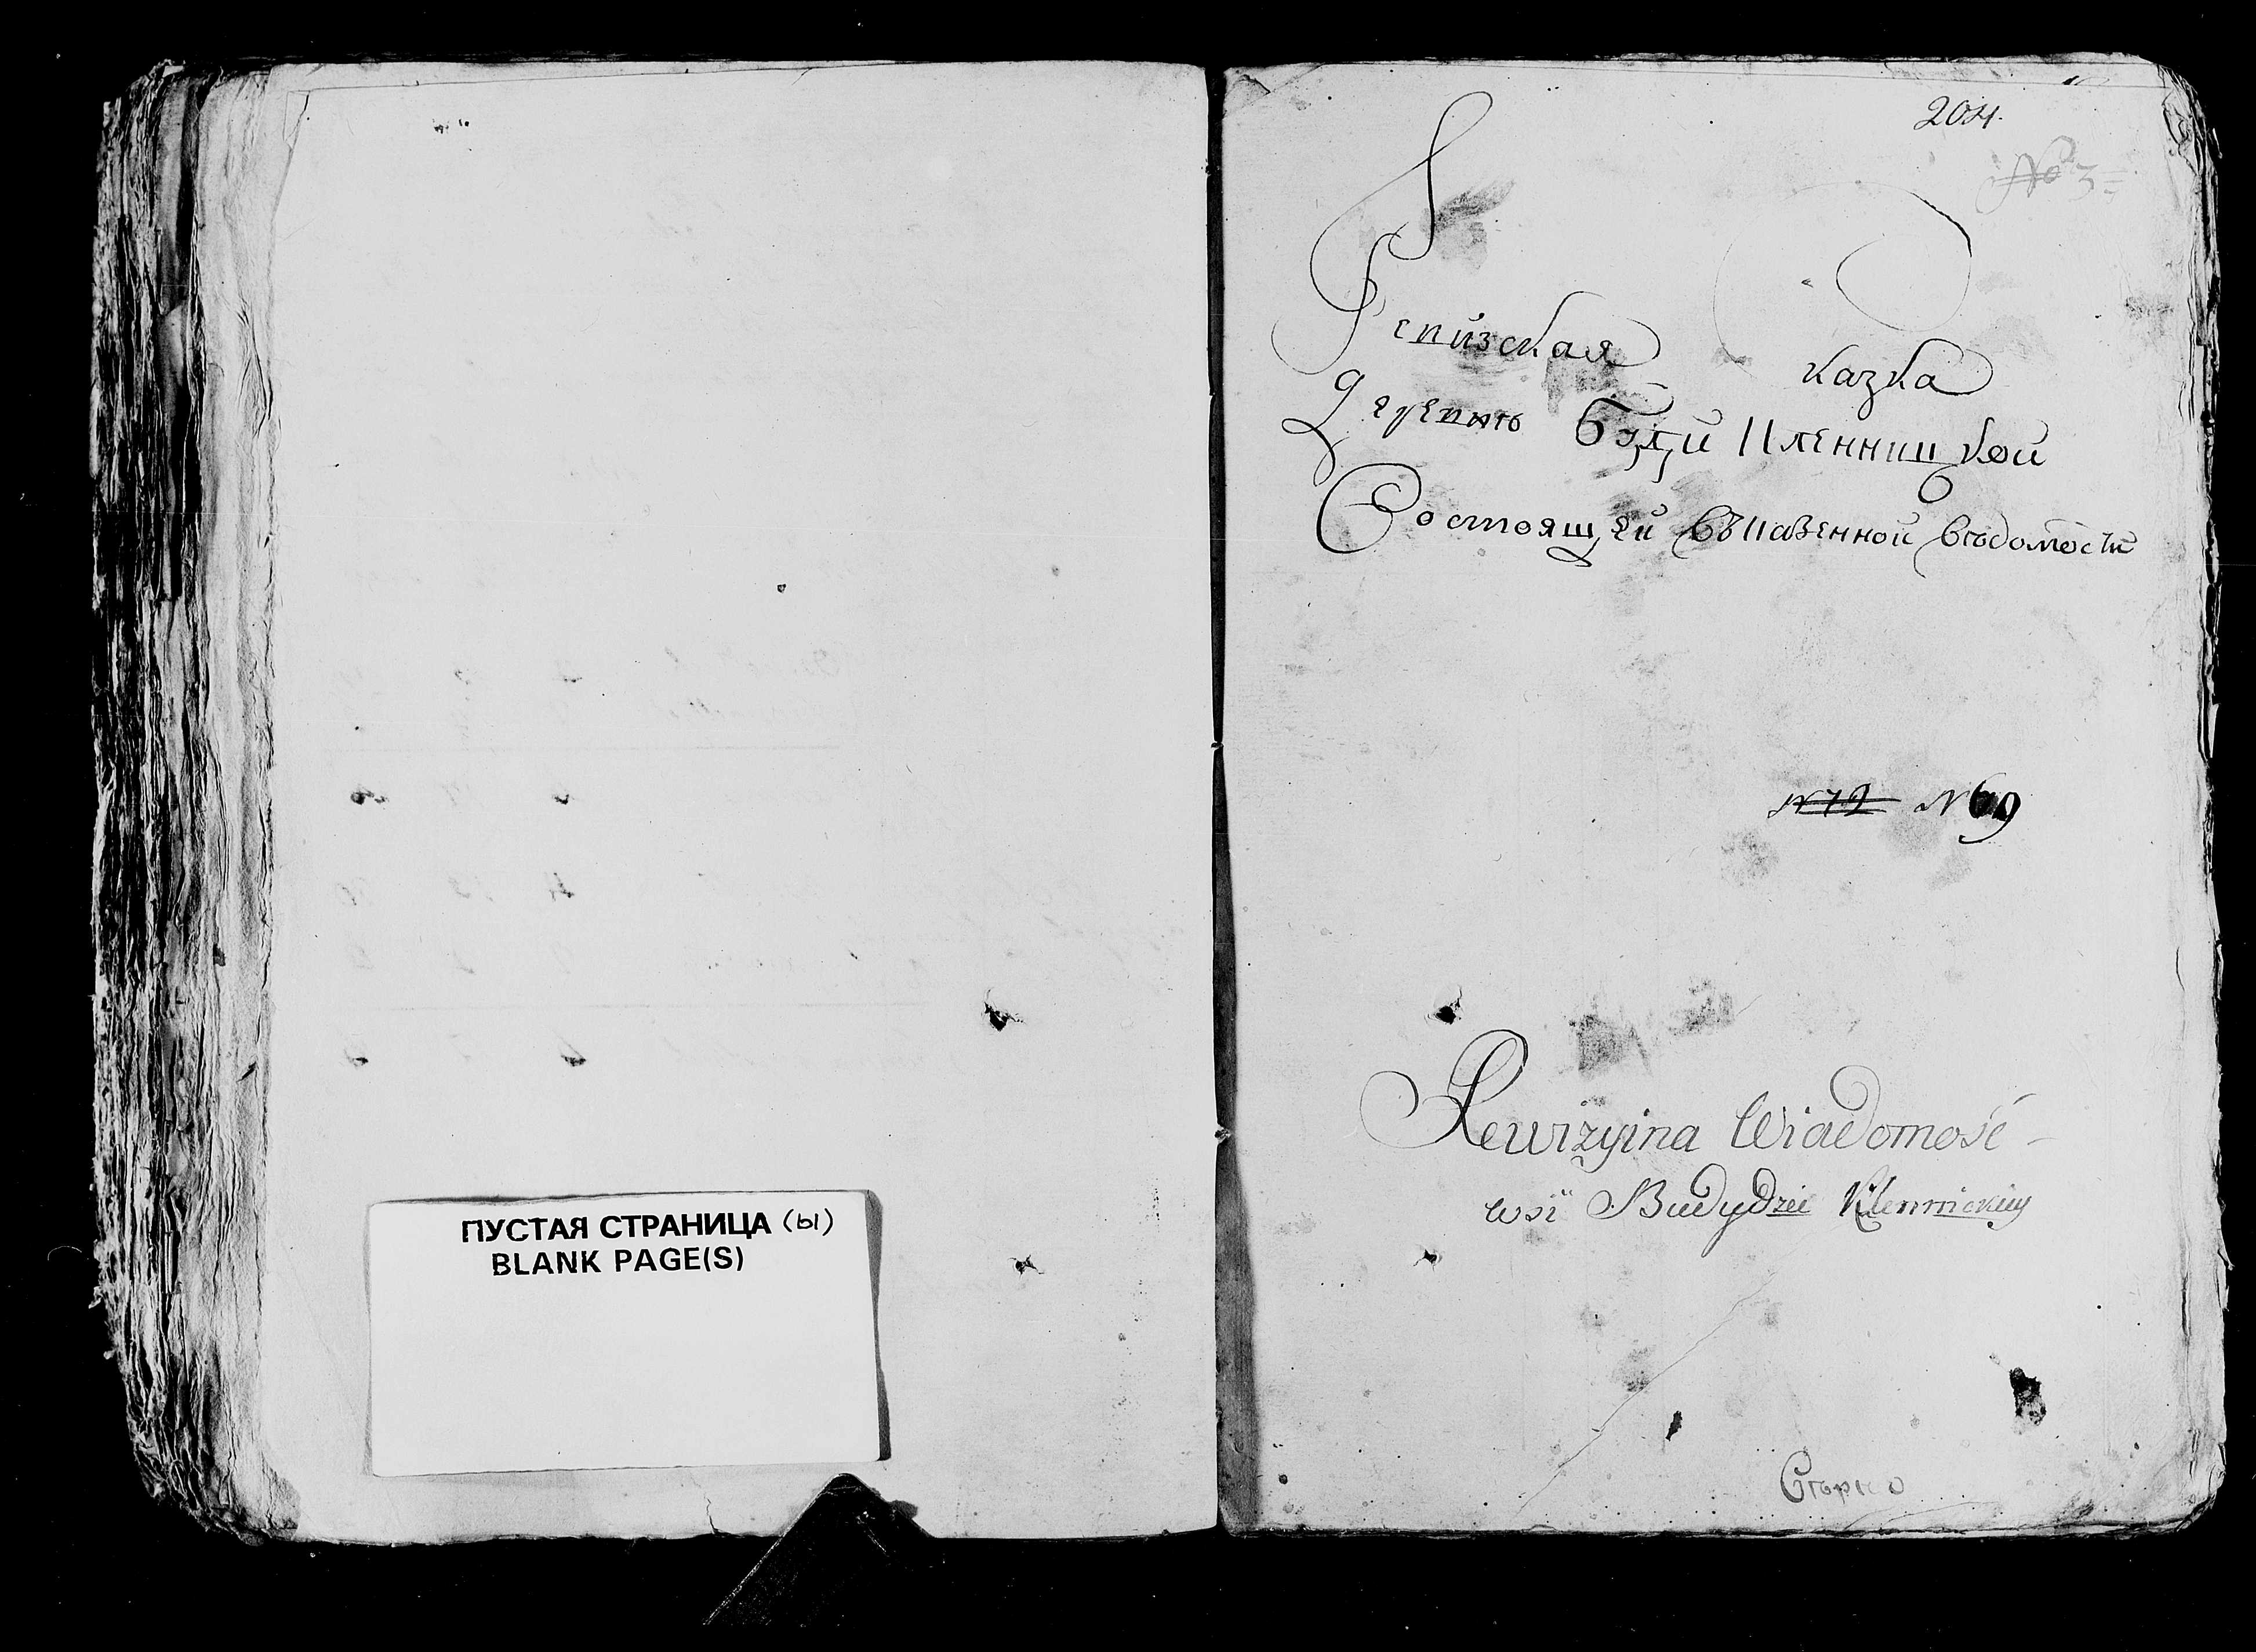 ПУСТАЯ СТРАНИЦА (Ы)
BLANK PAGE(S)
204.
№ 3=
Ревизская Сказка
Деревнѣ Буди Кленницкой
Состоящей въ Казенной вѣдомости
N 72 N 69
Rewizyina Wiadomość -
wsi Budy Klennickiey
Вѣрно